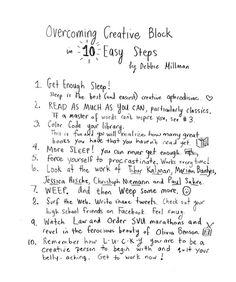 Overcoming Creative Block
in 10 Easy Steps
by Debbie Millman
1. Get Enough Sleep!
Sleep is the best (and easiest) creative aphrodisiac
2. READ AS MUCH AS YOU CAN, particularly classics.
If a master of words can't inspire you, see #3.
3. Color Code your library.
This is fun and you will realize how many great
books you have that you haven't read yet.
4. More SLEEP! You can never get enough.
5. Force yourself to procrastinate. Works every time!
6. Look at the work of Tibor Kalman, Marian Bantjes,
Jessica Hische, Christoph Niemann and Paul Sahre.
7. WEEP. And then weep some more.
8. Surf the Web. Write inane tweets. Check out your
high school friends on Facebook. Feel smug.
9. Watch Law and Order SVU marathons and
revel in the ferocious beauty of Olivia Benson
10. Remember how L-U-C-K-Y you are to be a
creative person to begin with and quit your
belly-aching. Get to work now!